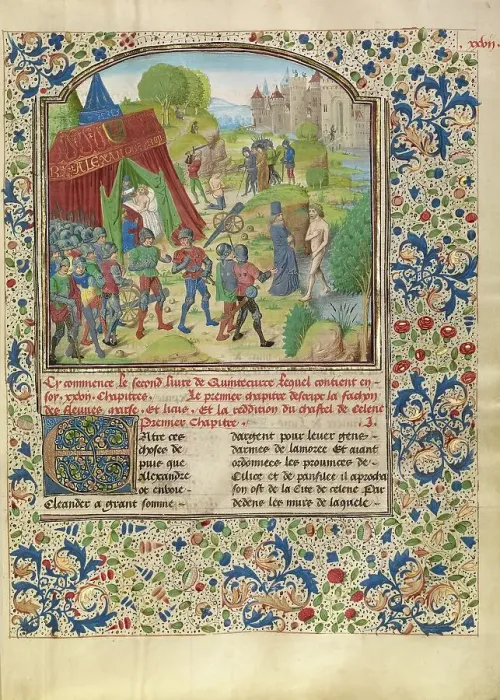 xxvij.
ALEXA
Cy commence le second liure de Quintecurce lequel contient en-
soy. xxvij. chapitres. Le premier chapitre descript la fachon
des fleuues marse. Et licus. Et la reddition du chastel de celene
Premier Chapitre. .I.
Entre ces
choses de
puis que
Alexandre
ot enuoie
Cleander a grant somme
dargent pour leuer gens-
darmes de lamoree Et aiant
ordonnees les prouinces de-
Cilice et de panfilee il aprocha
son ost de la Cite de celene Par
dedens les murs de laquele-